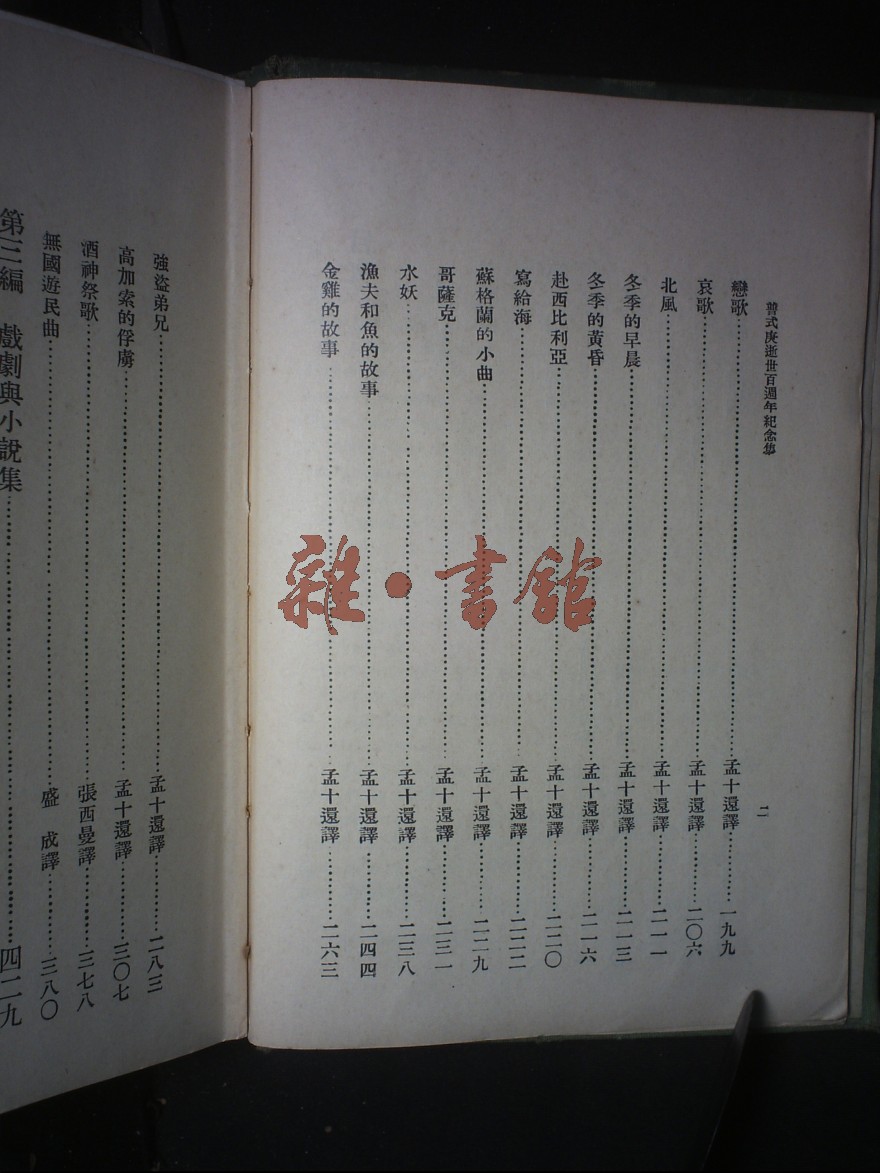 普式庚逝世百週年紀念集
二
戀歌……孟十還譯……一九九
哀歌……孟十還譯……二〇六
北風……孟十還譯……二一一
冬季的早晨……孟十還譯……二一三
冬季的黃昏……孟十還譯……二一六
赴西比利亞……孟十還譯……二二〇
寫給海……孟十還譯……二二二
蘇格蘭的小曲……孟十還譯……二二九
哥薩克……孟十還譯……二三一
水妖……孟十還譯……二三八
漁夫和魚的故事……孟十還譯……二四四
金雞的故事……孟十還譯……二六三
強盜弟兄……孟十還譯……二八三
高加索的俘虜……孟十還譯……三〇七
酒神祭歌……張西曼譯……三七八
無國遊民曲……盛 成譯……三八〇
第三編 戲劇與小說集……四二九
雜·書館